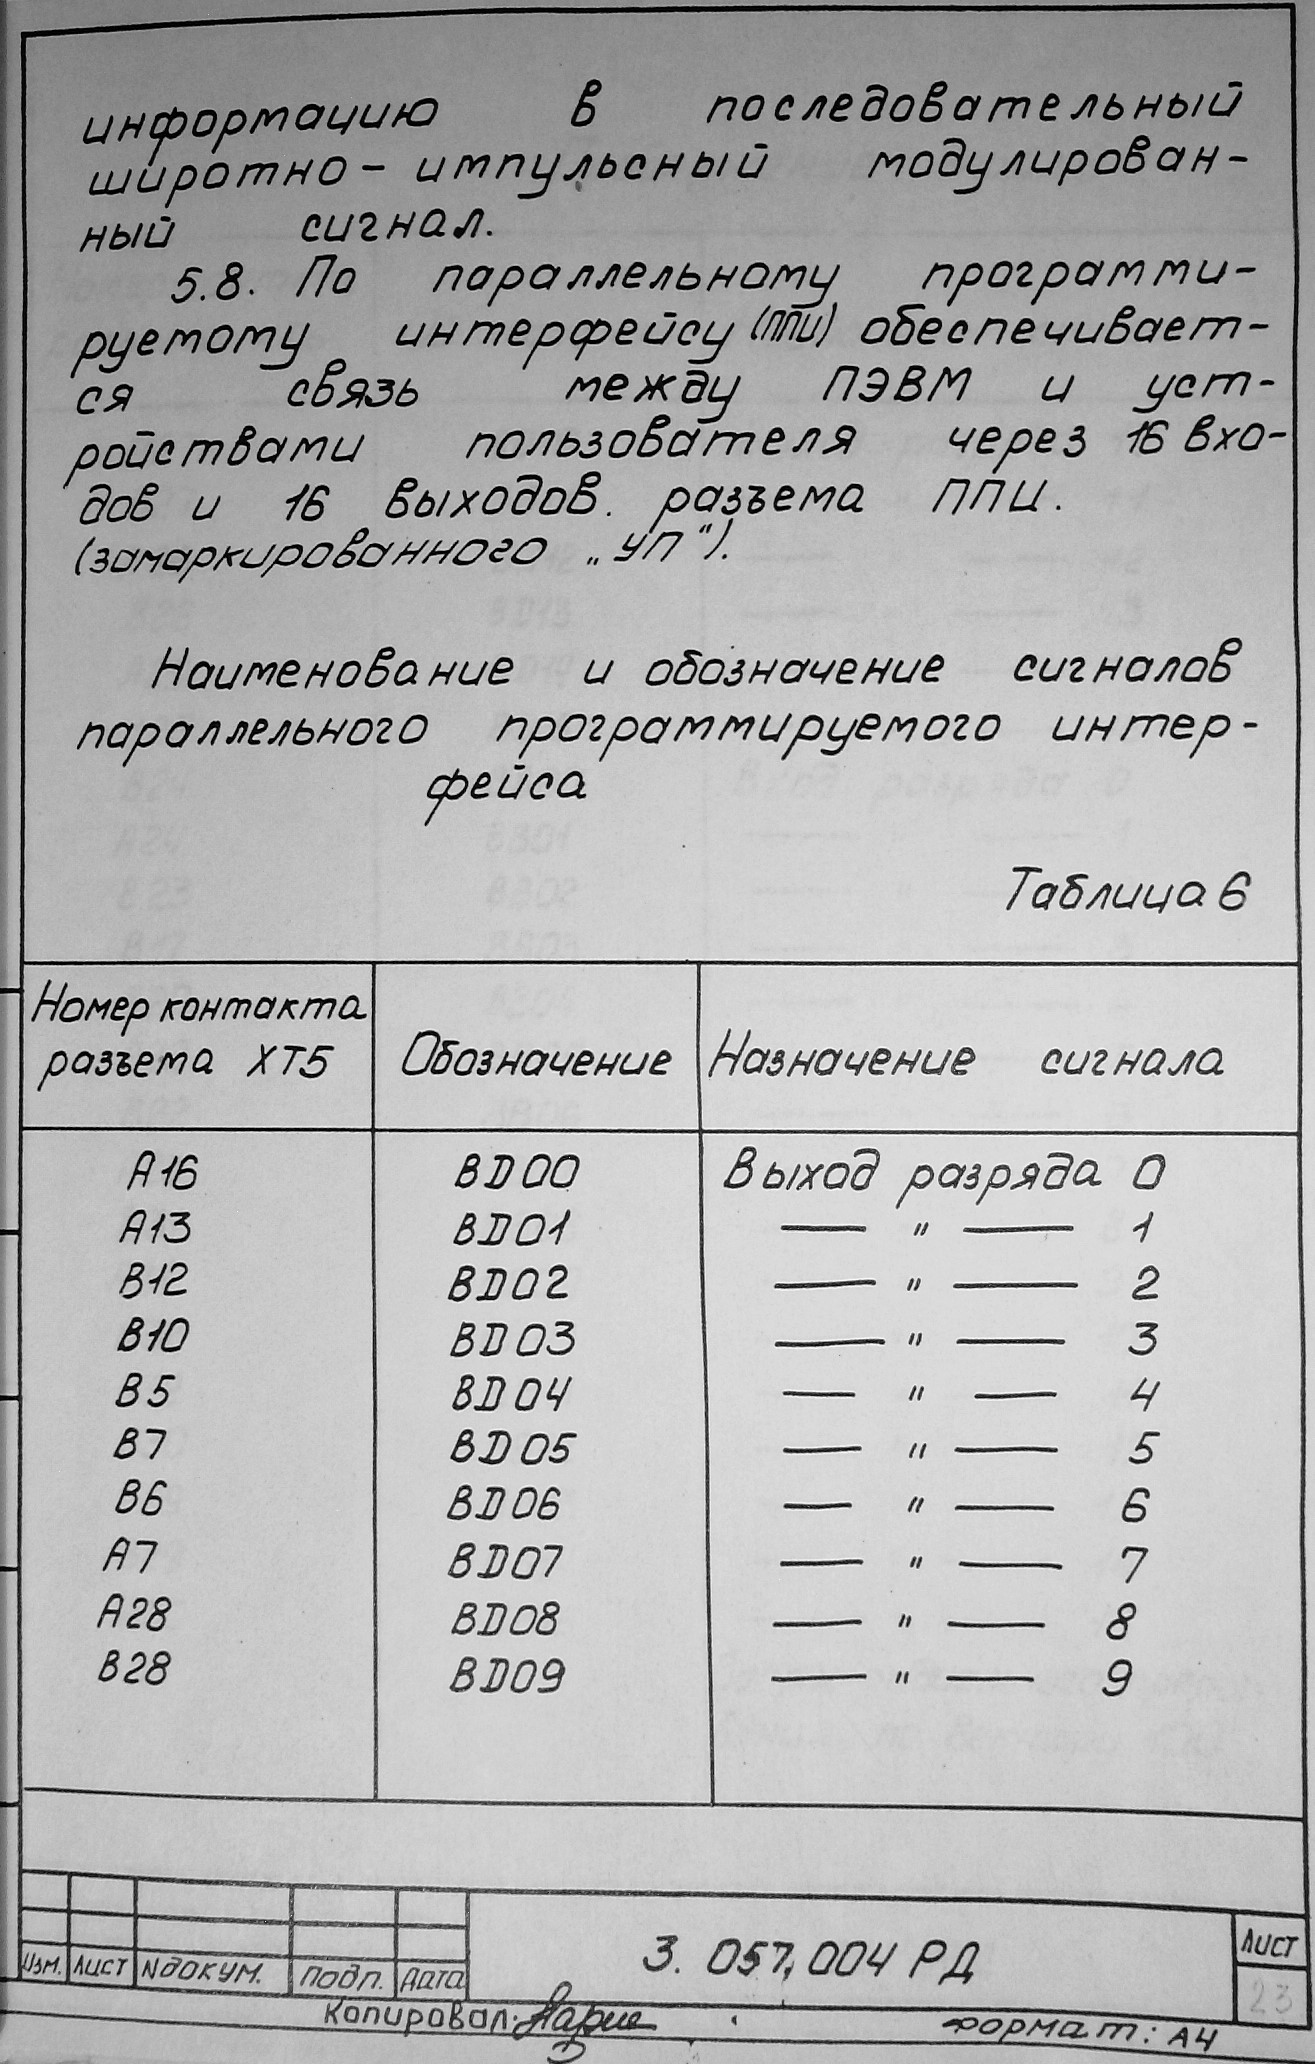 информацию в последовательный
широтно-импульсный модулирован-
ный сигнал.
5.8. По параллельному программи-
руемому интерфейсу (ППИ) обеспечивает-
ся связь между ПЭВМ и уст-
ройствами пользователя через 16 вхо-
дов и 16 выходов. разъема ППИ.
(замаркированного „УП").
Наименование и обозначение сигналов
параллельного программируемого интер-
фейса
Таблица 6
Номер контакта разъема ХТ5 Обозначение Назначение сигнала
А16 BD00 Выход разряда 0
А13 BD01 — " — 1
В12 BD02 — " — 2
В10 BD03 — " — 3
В5 BD04 — " — 4
В7 BD05 — " — 5
В6 BD06 — " — 6
А7 BD07 — " — 7
А28 BD08 — " — 8
В28 BD09 — " — 9
Изм. Лист N докум. Подп. Дата 3.057.004 РД Лист
23
Копировал:
Формат: А4